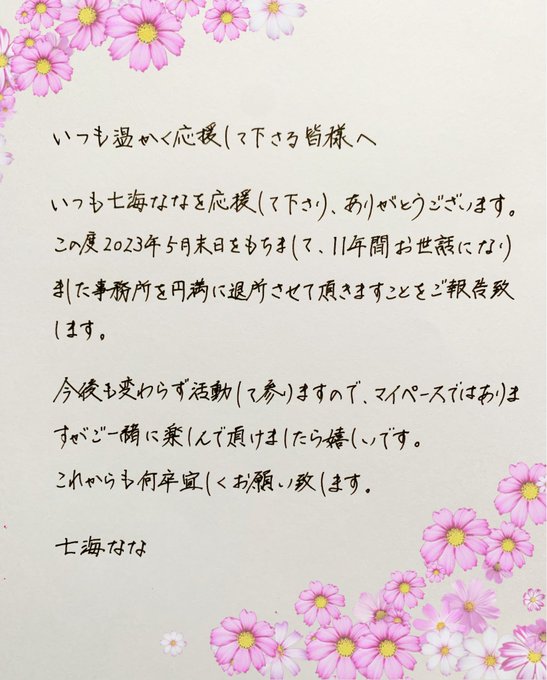 いつも温かく応援して下さる皆様へ
いつも七海ななを応援して下さり、ありがとうございます。
この度2023年5月末日をもちまして、11年間お世話になり
ました事務所を円満に退所させて頂きますことをご報告致
します。
今後も変わらず活動して参りますので、マイペースではありま
すがご一緒に楽しんで頂けましたら嬉しいです。
これからも何卒宜しくお願い致します。
七海なな